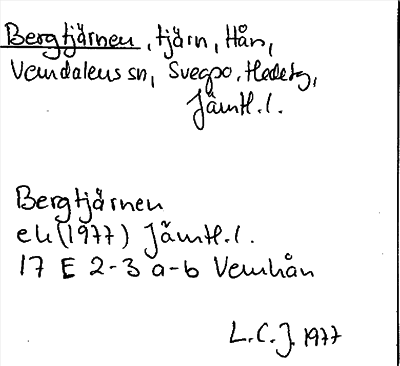 Bergtjärnen, tjärn, Hån,
Vemdalens sn, Svegpo, Hedetg,
Jämtl.l.
Bergtjärnen
ek (1977) Jämtl.l.
17 E 2-3 a-b Vemhån
L.C.J. 1977